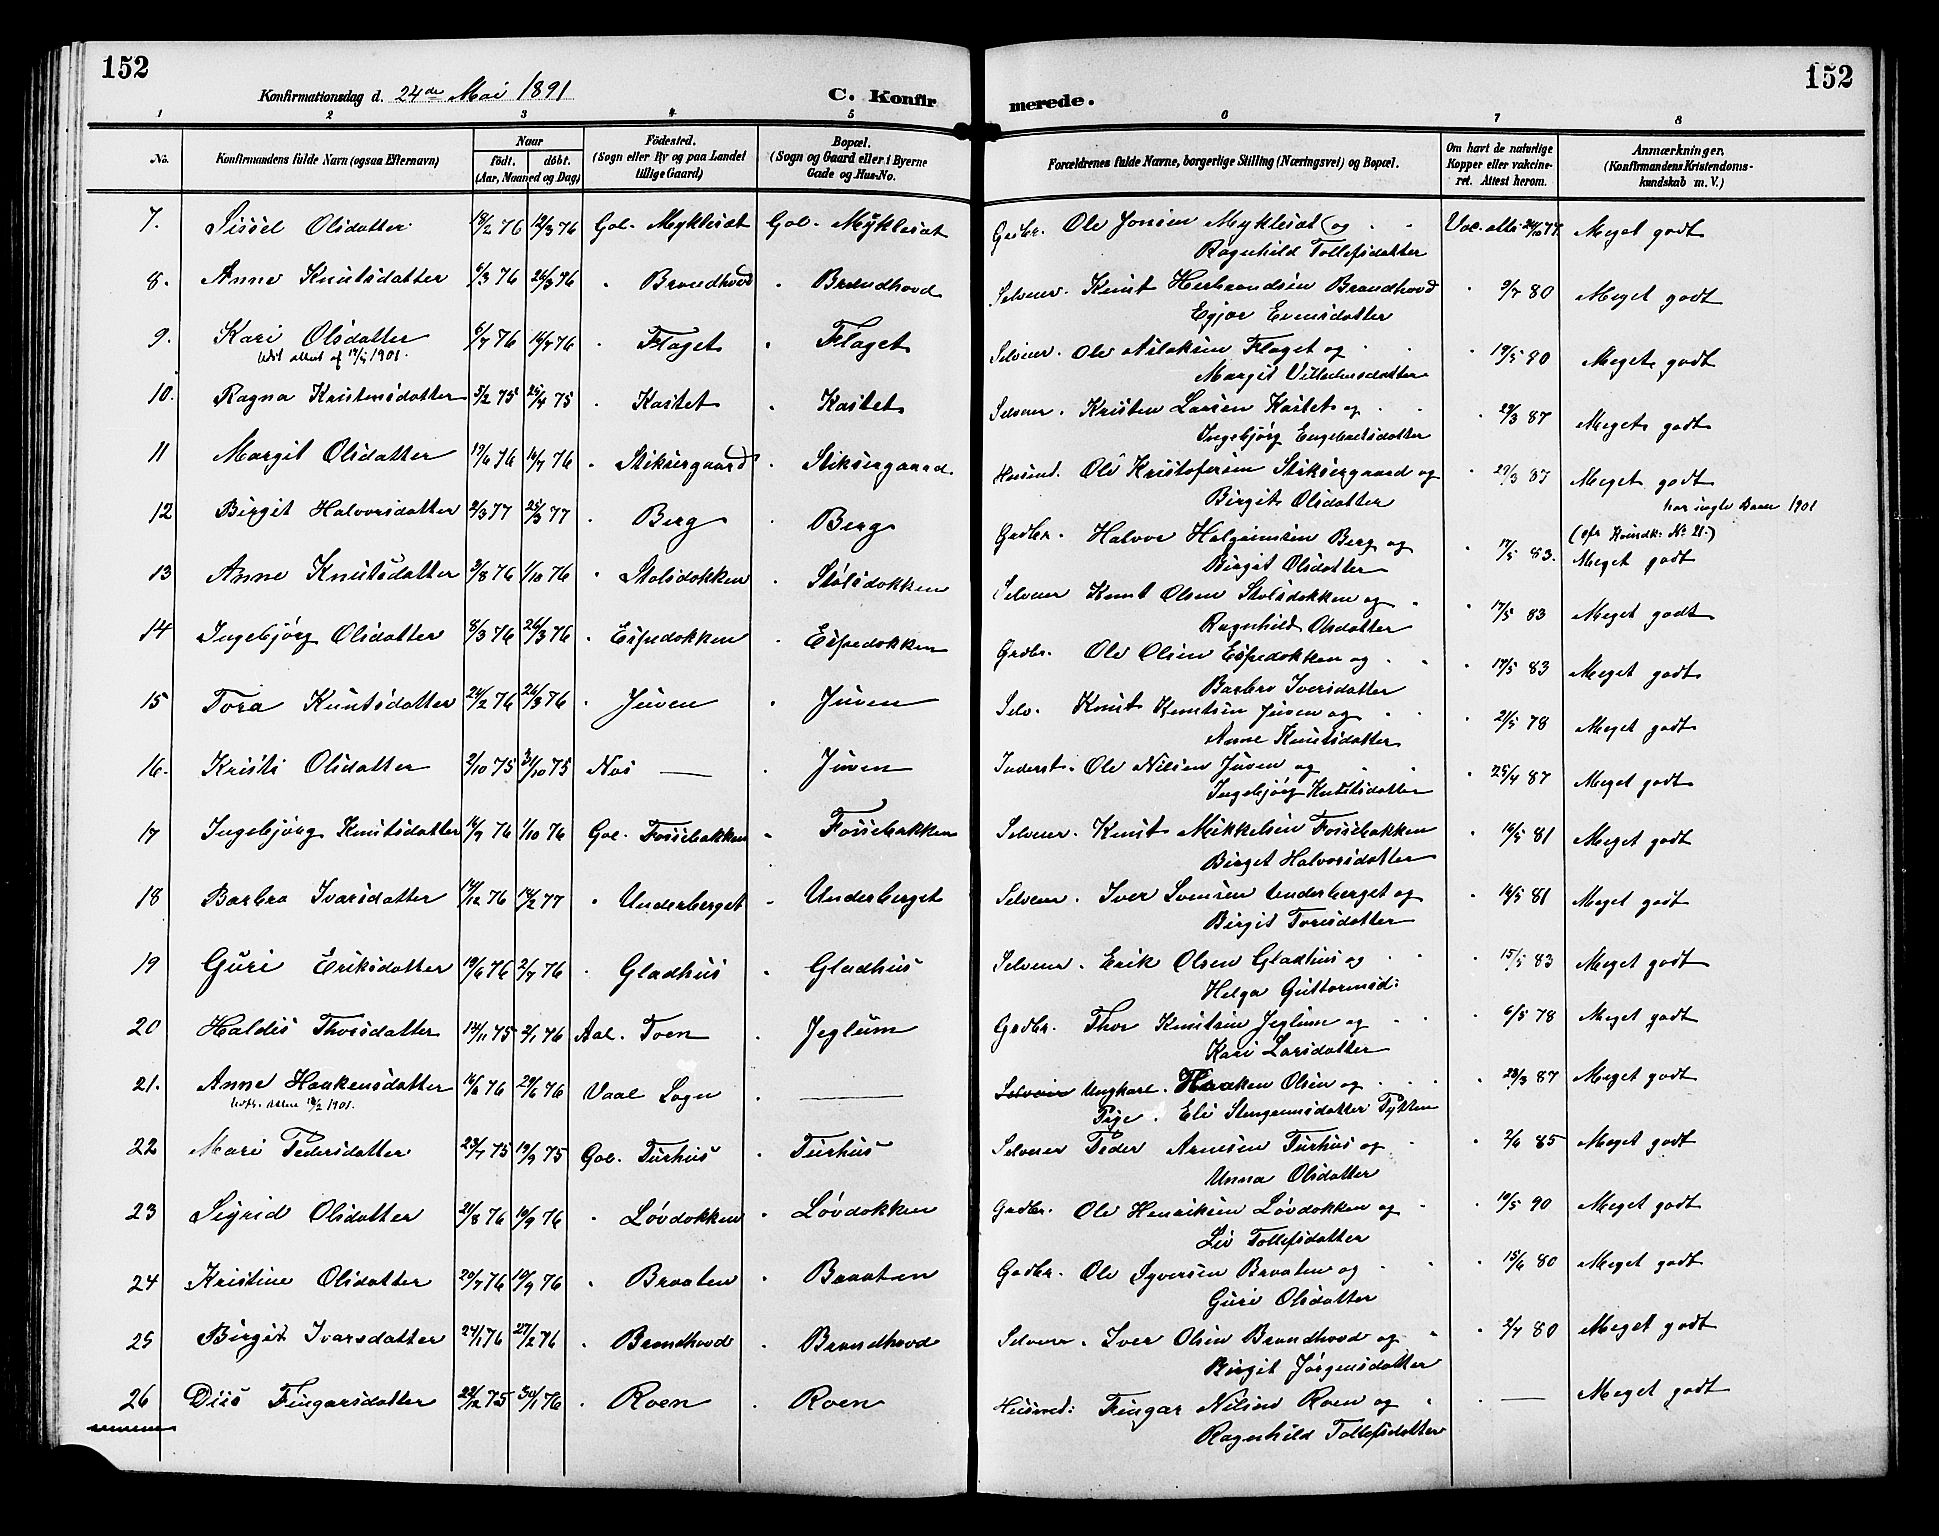 152
Konfirmationsdag d. 24de Mai 1891
C. Konfirmerede.
152
1 2 3 4 5 6 7 8
No. Konfirmandens fulde Navn (ogsaa Efternavn) Naar födt. döbt. (Aar, Maaned og Dag) Födested. (Sogn eller By og paa Landet tillige Gaard) Bopæl. (Sogn og Gaard eller i Byerne Gade og Hus-No. Forældrenes fulde Navne, borgerlige Stilling (Næringsvei) og Bopæl. Om havt de naturlige Kopper eller vakcineret. Attest herom. Anmærkninger. (Konfirmandens Kristendomskundskab m. V.)
7. Sissel Olsdatter 18/2 76 12/3 76 Gol. Myklesæt Gol. Myklesæt Grdbr. Ole Jonsen Myklesæt (og Vac. atts. 24/10 77 Meget godt
Ragnhild Tollefsdatter
8. Anne Knutsdatter 6/3 76 26/3 76 " Brandhovd " Brandhovd Selveier. Knut Herbrandsen Brandhovd " 9/7 80 Meget godt
Egjor Evensdatter
9. Kari Olsdatter 6/7 76 16/7 76 " Flaget " Flaget Selveier. Ole Aslaksen Flaget og " 19/5 80 Meget godt
Udst attest af 17/5 1901.
Margit Villumsdatter
10. Ragna Kristensdatter 5/2 75 25/4 75 " Kastet " Kastet Selveier. Kristen Larsen Kastet og " 29/3 87 Meget godt
Ingebjörg Engebretsdatter
11 Margit Olsdatter 19/6 76 16/7 76 " Stiksergaard " Stiksergaard Husmd. Ole Kristofersen Stiksergaard og " 29/3 87 Meget godt
Birgit Olsdatter
har ingle Baar 1901
12 Birgit Halvorsdatter 2/3 77 25/3 77 " Berg " Berg Grdbr. Halvor Helgeimsen Berg og " 17/5 83. (ofr Kvindk: No 21.) Meget godt
Birgit Olsdatter
13 Anne Knutsdatter 3/8 76 1/10 76 " Stolsdokken " Stolsdokken Selveier Knut Olsen Stolsdokken og " 17/5 83 Meget godt
Ragnhild Olsdatter
14 Ingebjörg Olsdatter 8/3 76 26/3 76 " Espedokken " Espedokken Grdbr. Ole Olsen Espedokken og " 17/5 83 Meget godt
Barbro Iversdatter
15 Tora Knutsdatter 24/2 76 26/3 76 " Juven " Juven Selv. Knut Knutsen Juven og " 2/5 78 Meget godt
Anne Knutsdatter
16. Kristi Olsdatter 2/10 75 31/10 75 Nes — " Juven Inderst. Ole Nilsen Juven og " 25/4 87 Meget godt
Ingebjörg Knutsdatter
17 Ingebjörg Knutsdatter 14/9 76 1/10 76 Gol. Fossebakken " Fossebakken Selveier. Knut Mikkelsen Fossebakken " 16/5 81 Meget godt
Birget Halvorsdatter
18 Barbro Ivarsdatter 14/12 76 14/2 77 " Underberget " Underberget Selveier. Iver Svensen Underberget og " 14/5 81 Meget godt
Birgit Toresdatter
19 Guri Eriksdatter 19/6 76 2/7 76 " Gladhus " Gladhus Selveier. Erik Olsen Gladhus og " 15/5 83 Meget godt
Helga Guttormsd:
20 Haldis Thorsdatter 14/11 75 2/1 76 Aal. Toen " Jeglum Grdbr. Thor Knutsen Jeglum og " 6/5 78 Meget godt
Kari Larsdatter
21. Anne Haakensdatter 14/6 76 29/6 76 Vaal Sogn " — Selveier Ungkarl. Haaken Olsen og " 23/3 87 Meget godt
Udst. Attest 18/2 1901.
Pige. Eli Stengrimsdatter Tytten
22 Mari Pedersdatter 23/7 75 19/9 75 Gol. Turhus " Turhus Selveier Peder Arnesen Turhus og " 2/6 85 Meget godt
Unna Olsdatter
23 Sigrid Olsdatter 21/8 76 10/9 76 " Lövdokken " Lövdokken Grdbr. Ole Henriksen Lövdokken og " 10/5 90 Meget godt
Liv Tollefsdatter
24 Kristine Olsdatter 20/7 76 10/9 76 " Braaten " Braaten Grdbr. Ole Syversen Braaten og " 15/6 80 Meget godt
Guri Olsdatter
25 Birgit Ivarsdatter 24/1 76 27/2 76 " Brandhovd " Brandhovd Selveier. Iver Olsen Brandhovd og " 2/7 80 Meget godt
Birgit Jörgensdatter
26 Diis Fingarsdatter 22/12 75 30/1 76 " Roen " Roen Husmd: Fingar Nilsen Roen og " — Meget godt
Ragnhild Tollefsdatter